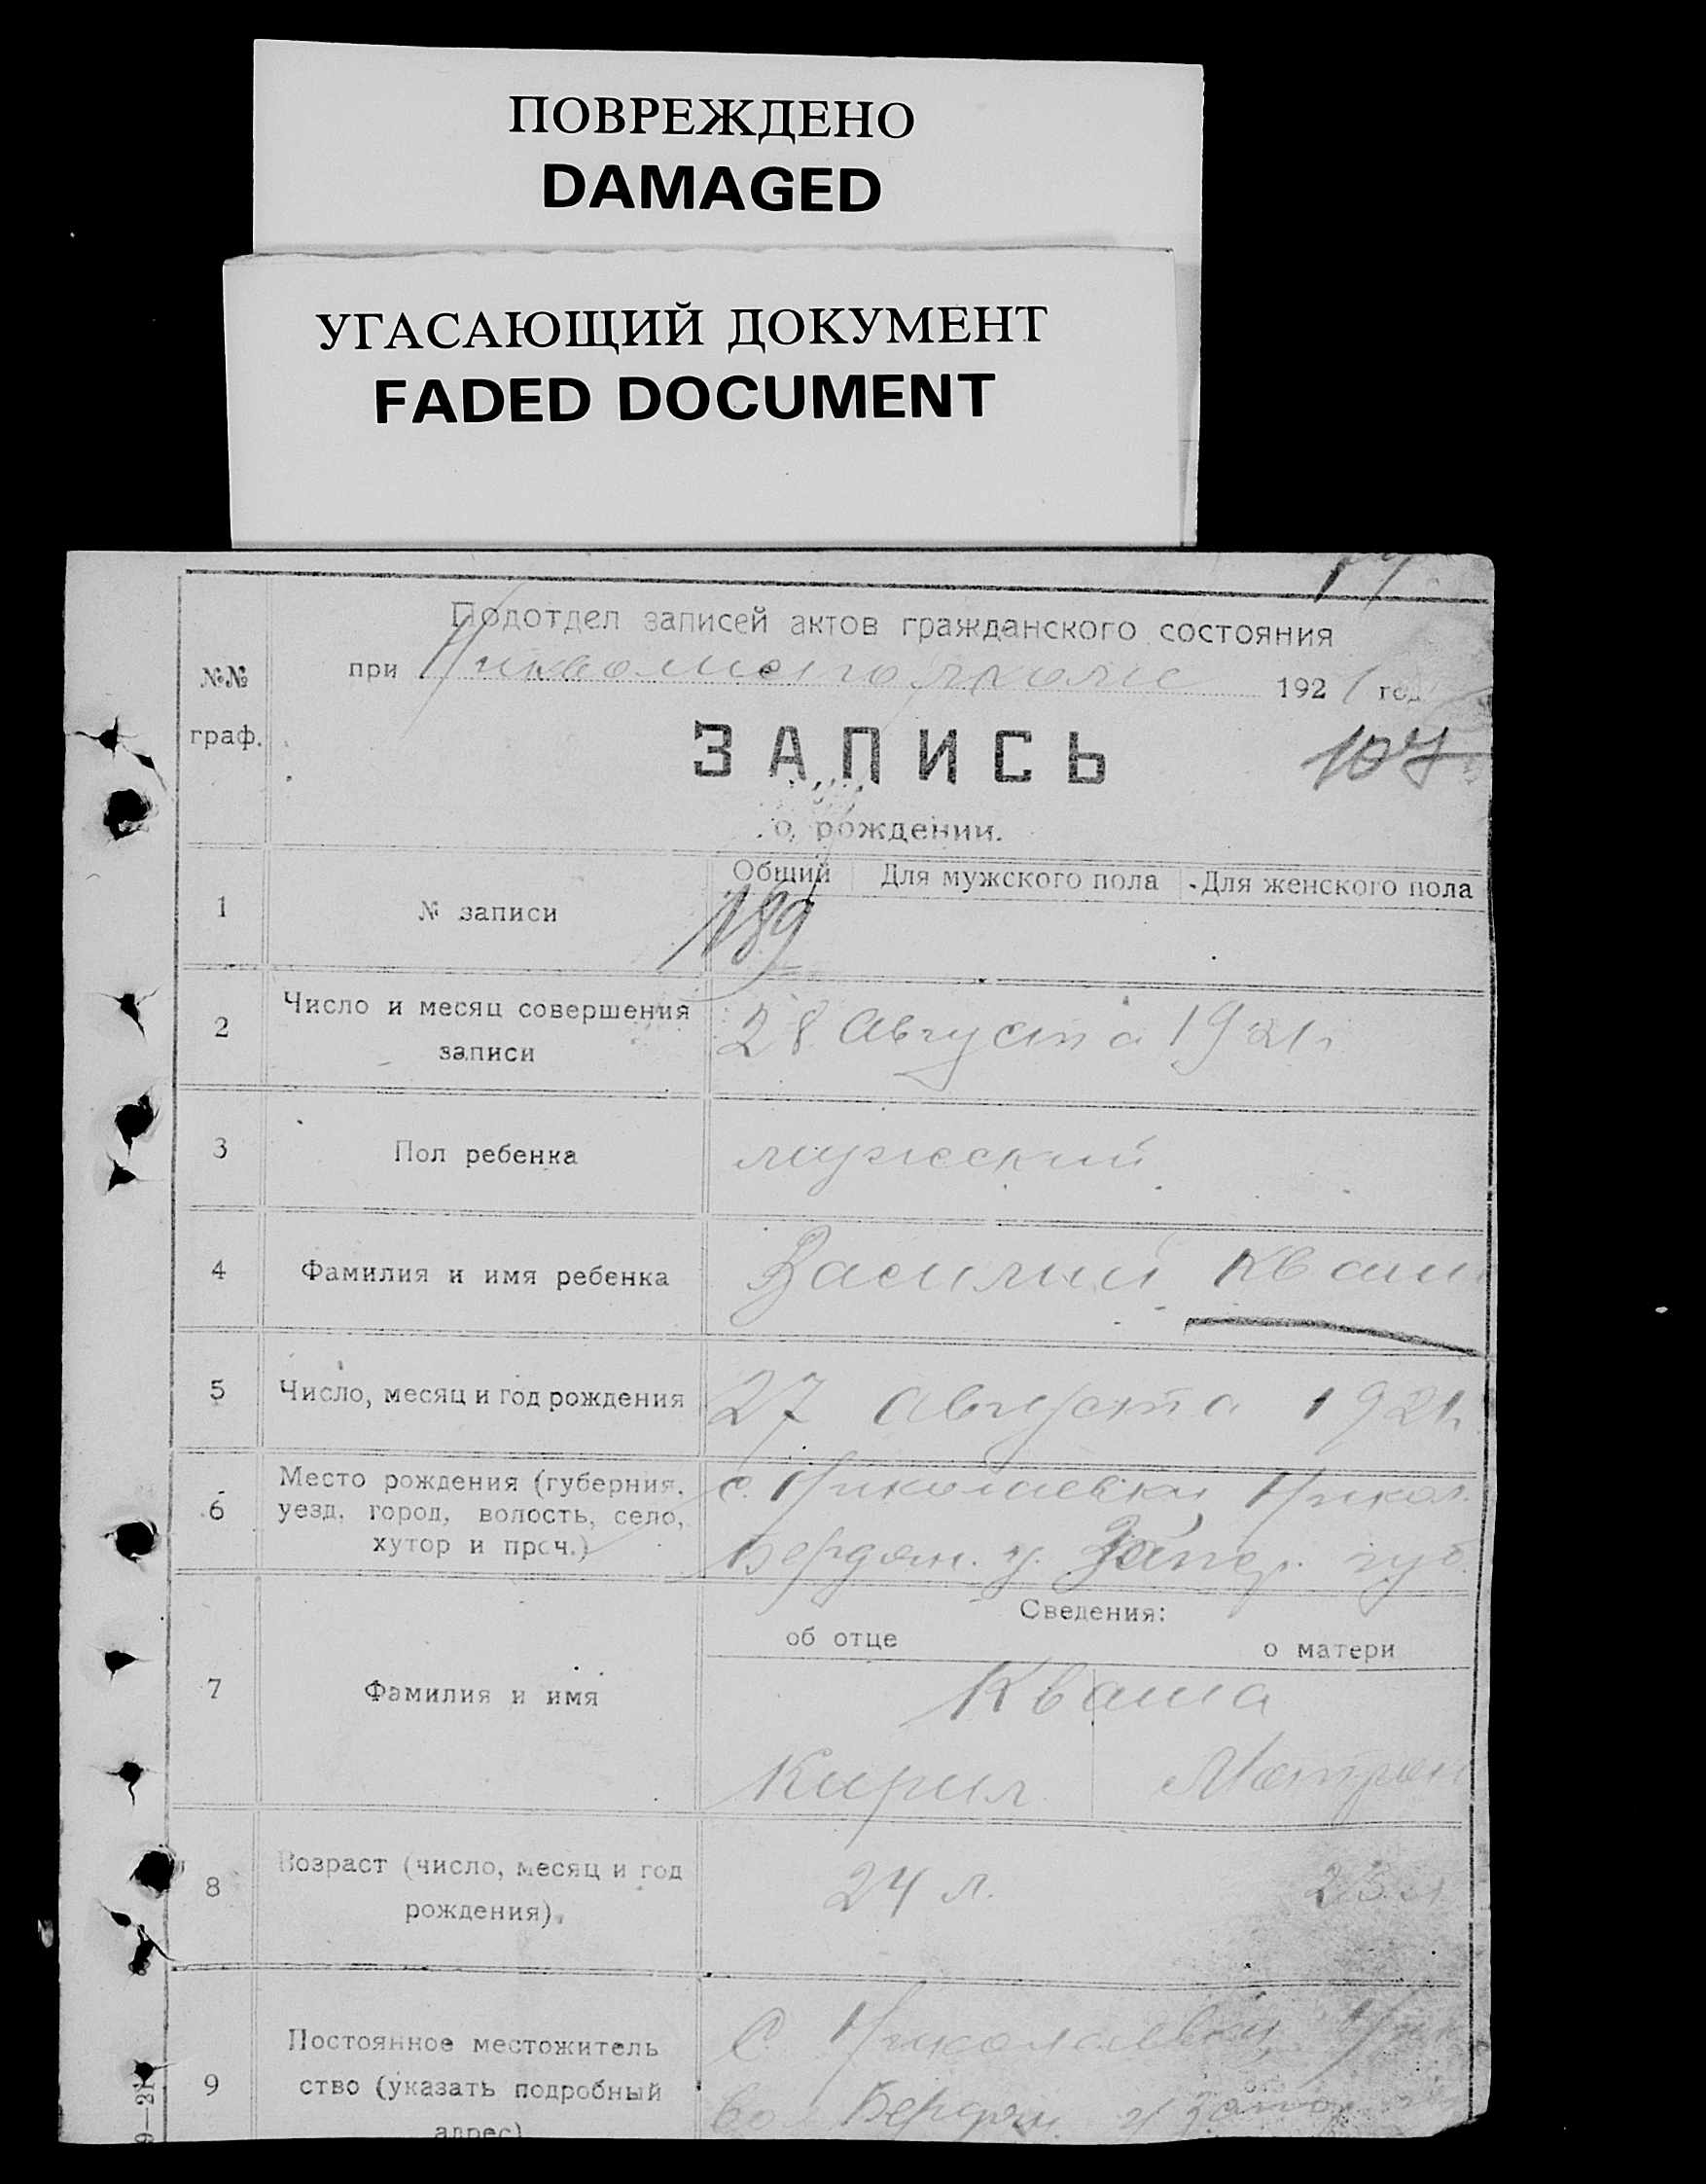 ПОВРЕЖДЕНО
DAMAGED
УГАСАЮЩИЙ ДОКУМЕНТ
FADED DOCUMENT
Подотдел записей актов гражданского состояния
при 1921 год
№№ граф.
ЗАПИСЬ
107
о рождении.
Общий Для мужского пола Для женского пола
1 № записи 189
2 Число и месяц совершения
записи 28 Августа 1921 г.
3 Пол ребенка мужеский
4 Фамилия и имя ребенка Василий Кваш
5 Число, месяц и год рождения 27 Августа 1921 г.
6 Место рождения (губерния, с. Николаевки Никол.
уезд, город, волость, село,
хутор и проч.) Бердян. у. Запор. губ.
Сведения:
об отце о матери
7 Фамилия и имя Кваша
Кирил Матрон
8 Возраст (число, месяц и год
рождения). 24 л. 23 л.
9 Постоянное местожитель С. Николаевки Ник
ство (указать подробный
адрес) во Бердян. у Запо